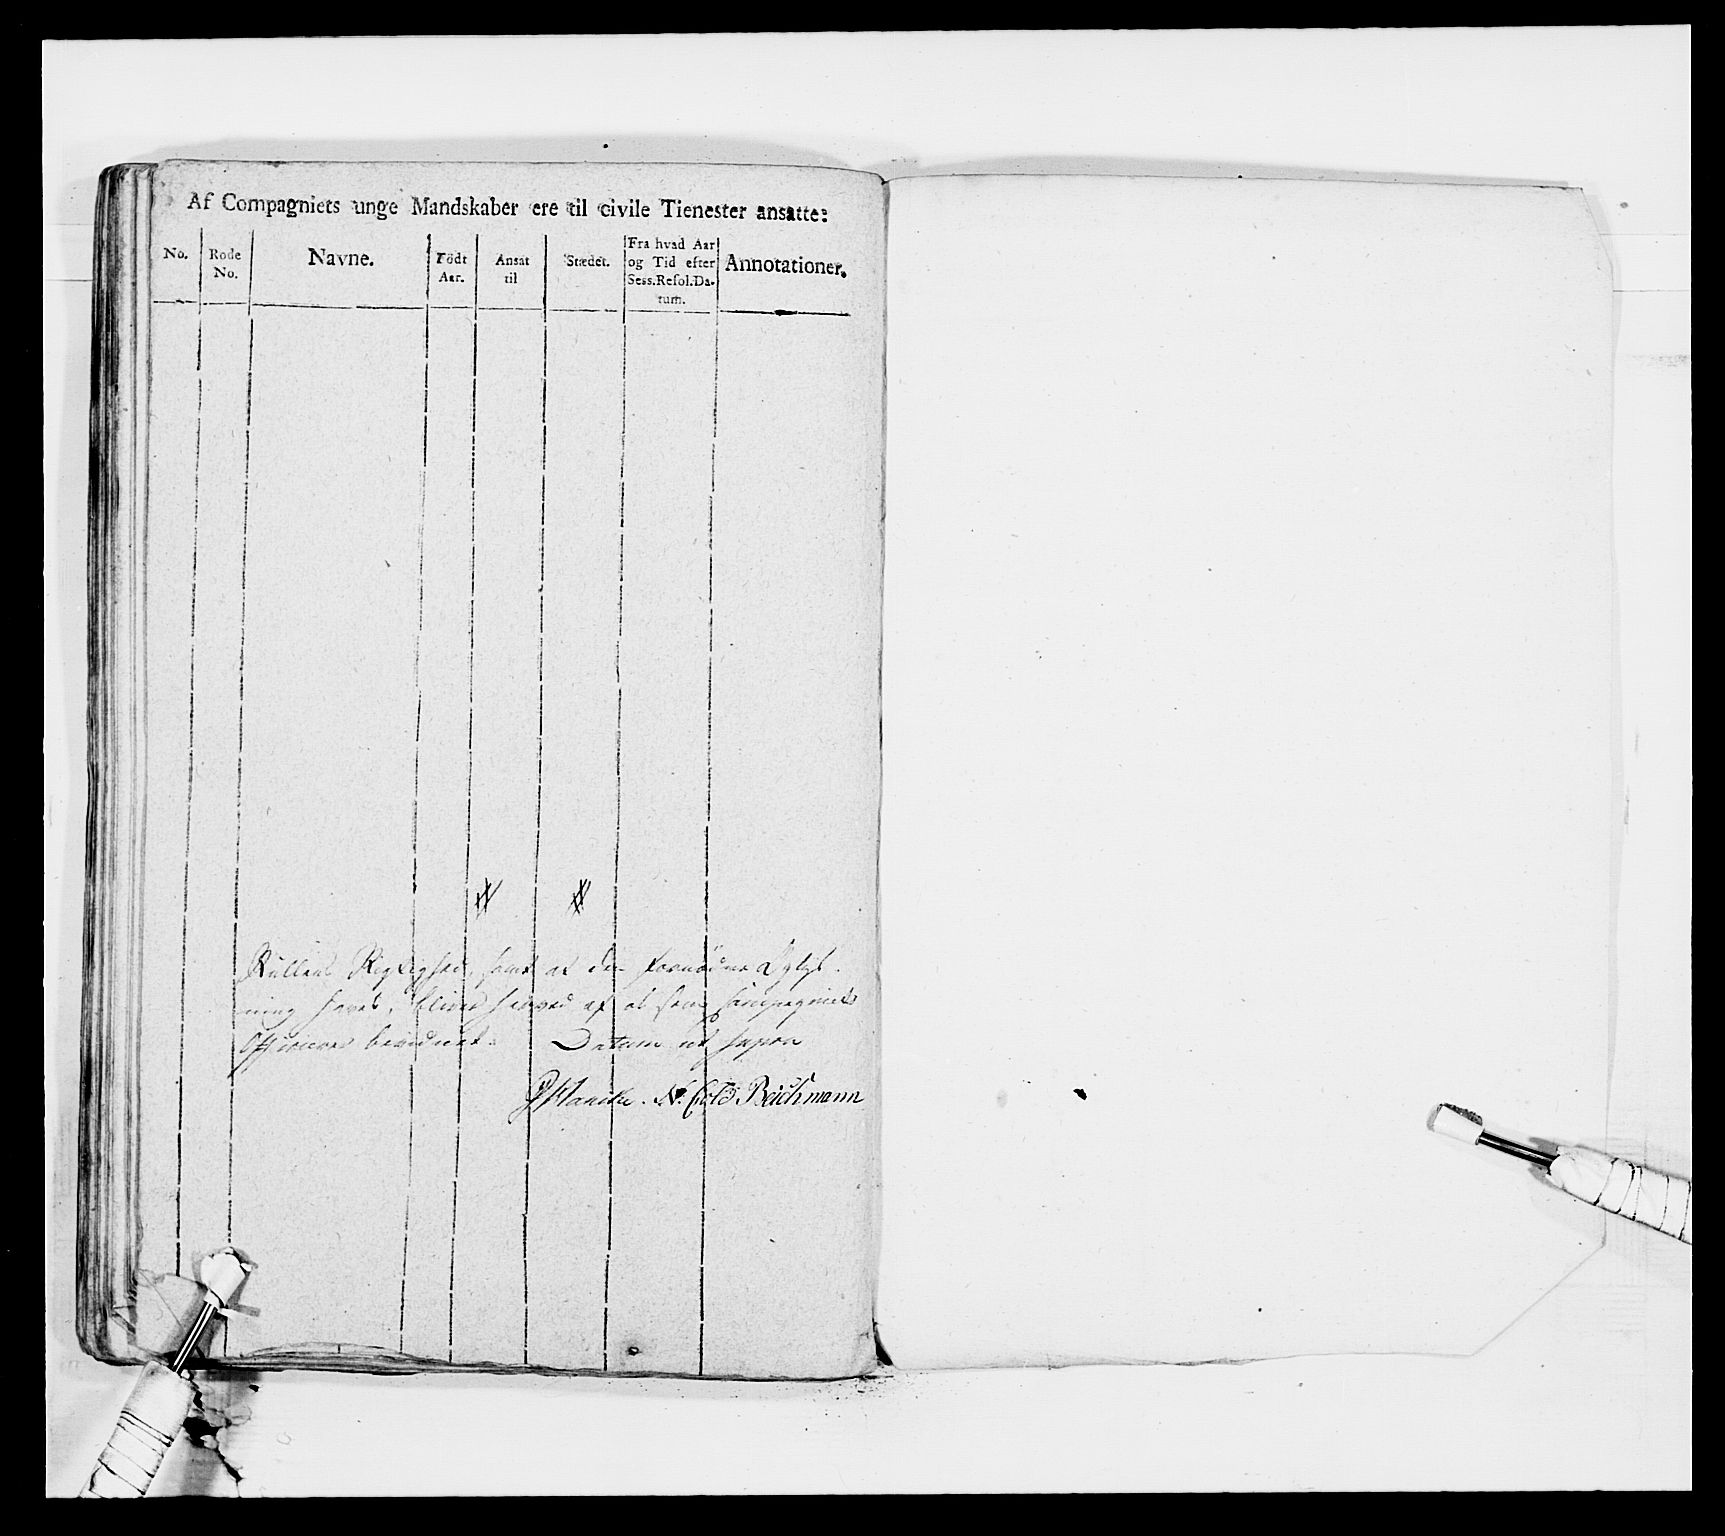 Af Compagniets unge Mandskaber ere til civile Tienester ansatte:
No.
Rode
No.
Navne.
Födt
Aar.
Ansat
til
Stædet.
Fra hvad Aar
og Tid efter
Sess.Resol.Da-
tum.
Annotationer.
Rullens Rigtighed, samt at den fornødne
ning haves, bliver herved af os som Compagniets
Officerer bevidnet. Datum ut supra
N. Cold Beichmann